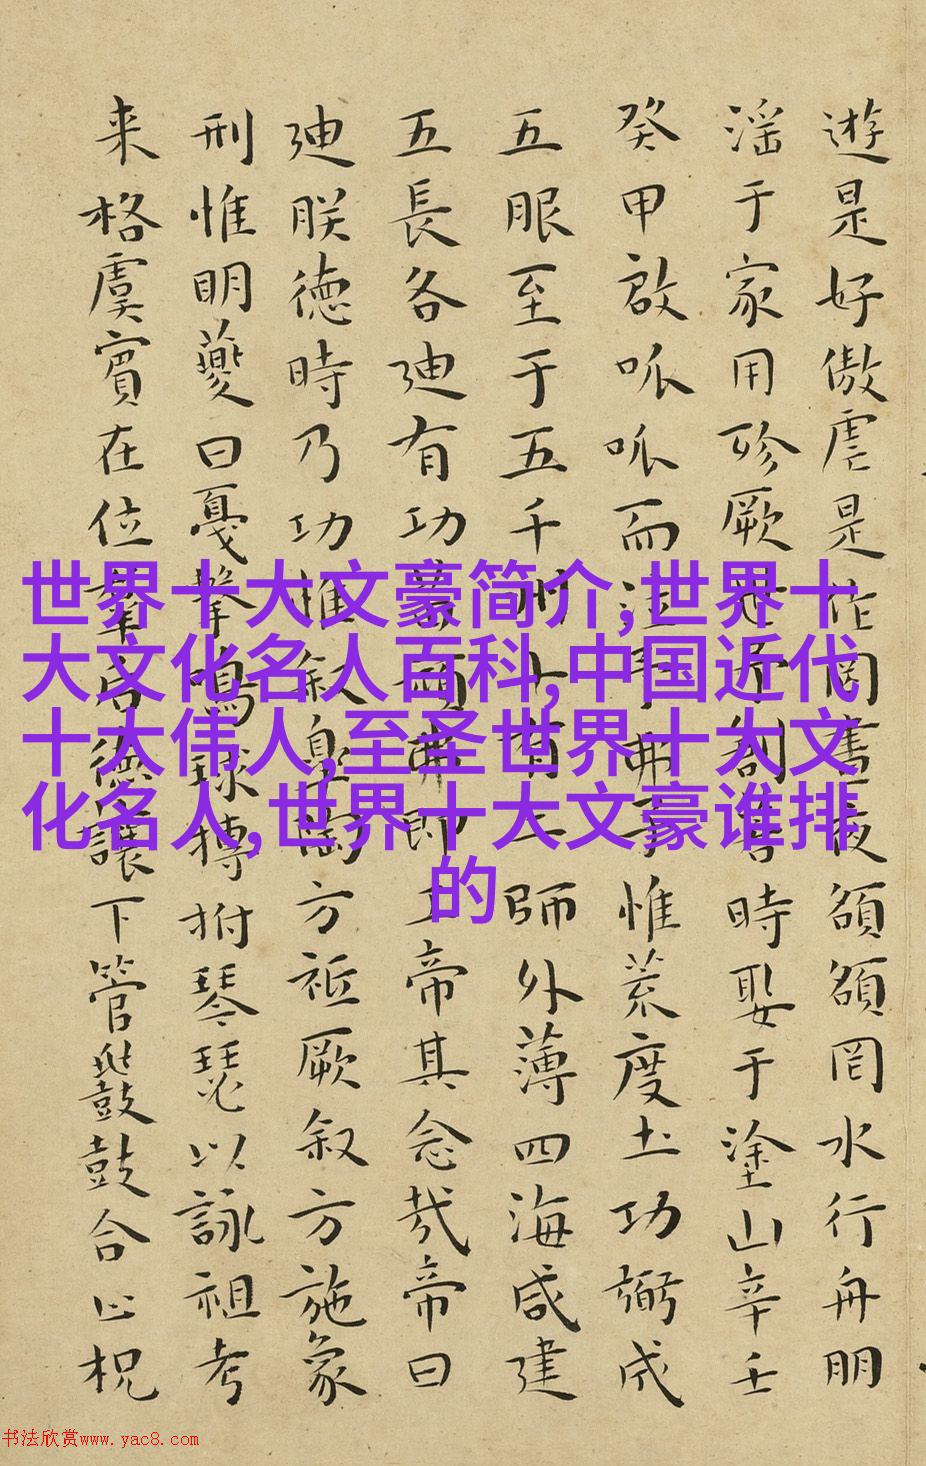 遊是好傲虐是作罔晝夜頟頟罔水行舟朋
淫于家用殄厥世予創若時娶于塗山辛壬
癸甲啟呱呱而泣予弗子惟荒度土功弼成
五服至于五千州十有二師外薄四海咸建
五長各迪有功苗頑弗即工帝其念哉帝曰
迪朕德時乃功惟叙皐陶方祗厥叙方施象
刑惟明夔曰戛擊鳴球搏拊琴瑟以詠祖考
来格虞賓在位羣后德讓下管鼗鼓合止柷
世界十大文豪简介,世界十
大文化名人百科,中国近代
十大伟人,至圣世界十大文
化名人,世界十大文豪谁排
的
书法欣赏www.yac8.com